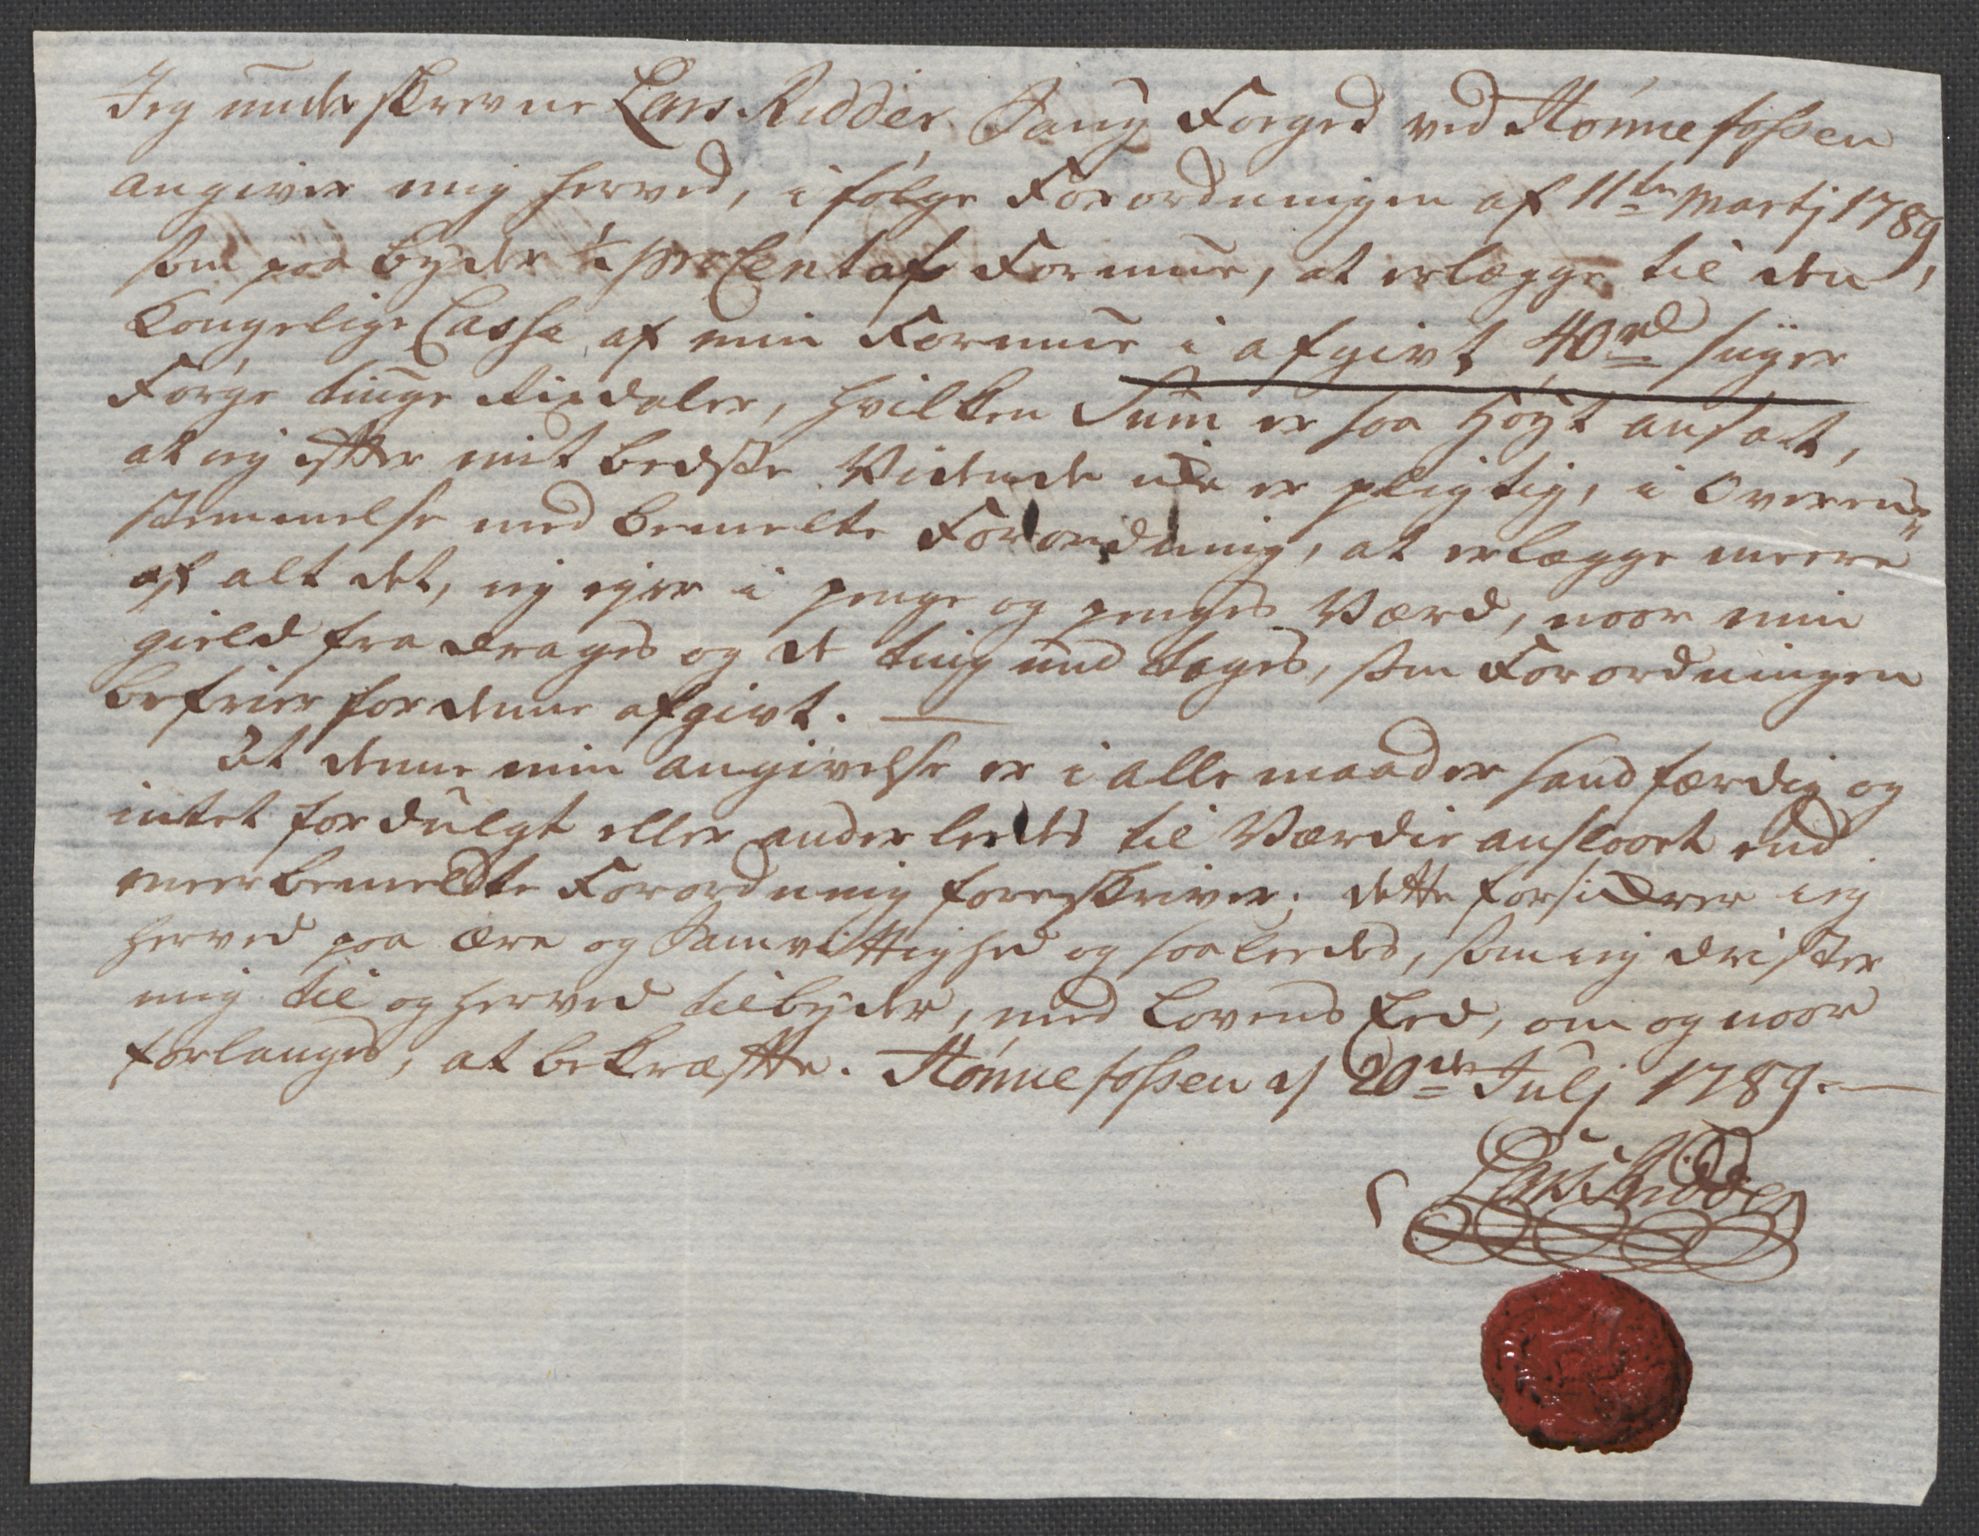 Jeg underskrevne Lars Ridder, Saug Foged ved Hønnefossen
angiver mig herved, i følge Forordningen af 11te Martj 1789,
som paa byder ½ pro Cent af Formue, at erlægge til den
Kongelige Casse af min Formue i afgivt 40 rd siger
Førge tiuge Rixdaler, hvilken Sum er saa høyt ansatt,
at ieg efter mit bedste Vidende ei er pligtig, i Overens=
stemmelse med bemelte Forordning, at erlægge meere
af alt det, ieg ejer i penge og penges Værd, naar min
gield fradrages og de ting undtages, som Forordningen
befrier for denne afgivt. —
At denne min angivelse er i alle maader sandfærdig og
intet fordulgt eller anderleeds til Værdie anslaaet end
meerbemeldte Forordning foreskriver; dette forsikrer ieg
herved paa ære og Samvittighed og saaleedes, som ieg drister
mig til og herved tilbyder, med Lovens Eed, om og naar
forlanges, at bekræfte. Hønnefossen d 20de Julj 1789. —
Lars Ridder